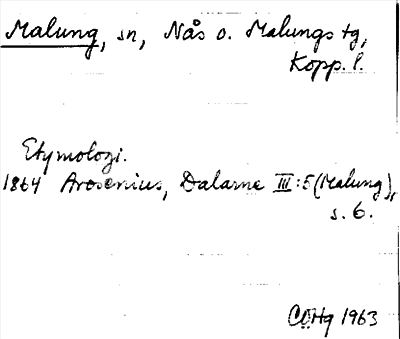 Malung, sn, Nås o. Malungs tg,
Kopp. l.
Etymologi.
1864 Arosenius, Dalarne III:5 (Malung),
s. 6.
CÖHg 1963